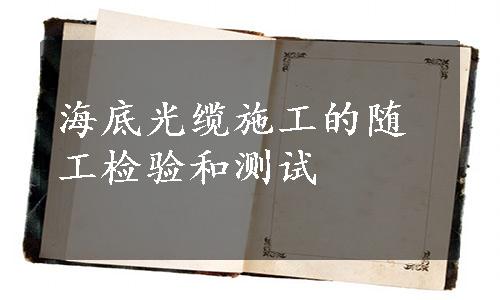 海底光缆施工的随
工检验和测试